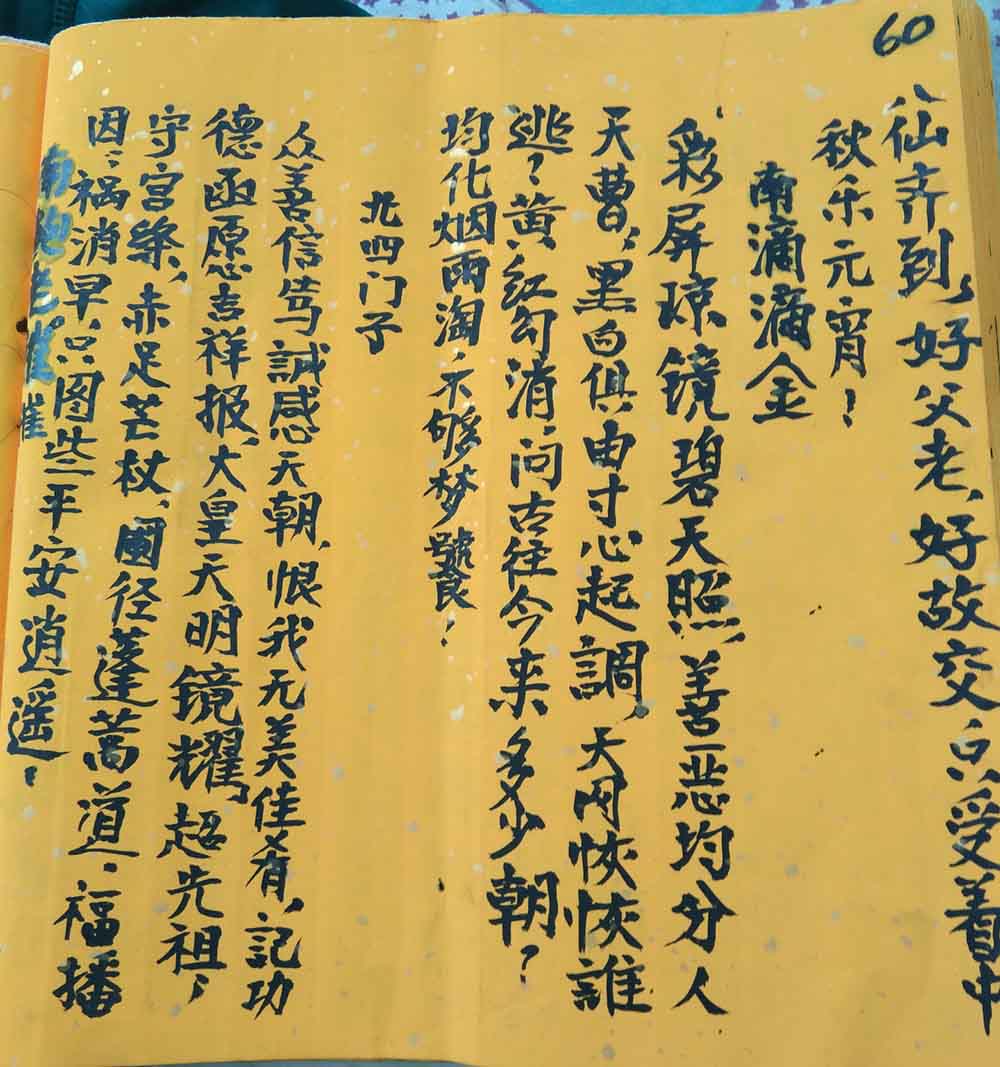 60
八仙齐到，好父老，好故交，只受着中
秋乐元宵！
南滴滴金
彩屏琼镜碧天照，善恶均分人
天曹，黑白俱由寸心起調，天网恢恢誰
逃？黄红勾消，问古往今来多少朝？
均化烟雨淘，不够梦饕！
北四门子
众善信笃誠感天朝，恨我无美佳肴，記功
德函愿吉祥报，大皇天明镜耀，超先祖，
守宫条，赤足芒杖，圆径蓬蒿道，福播
因，祸消早，只图些平安逍遥！